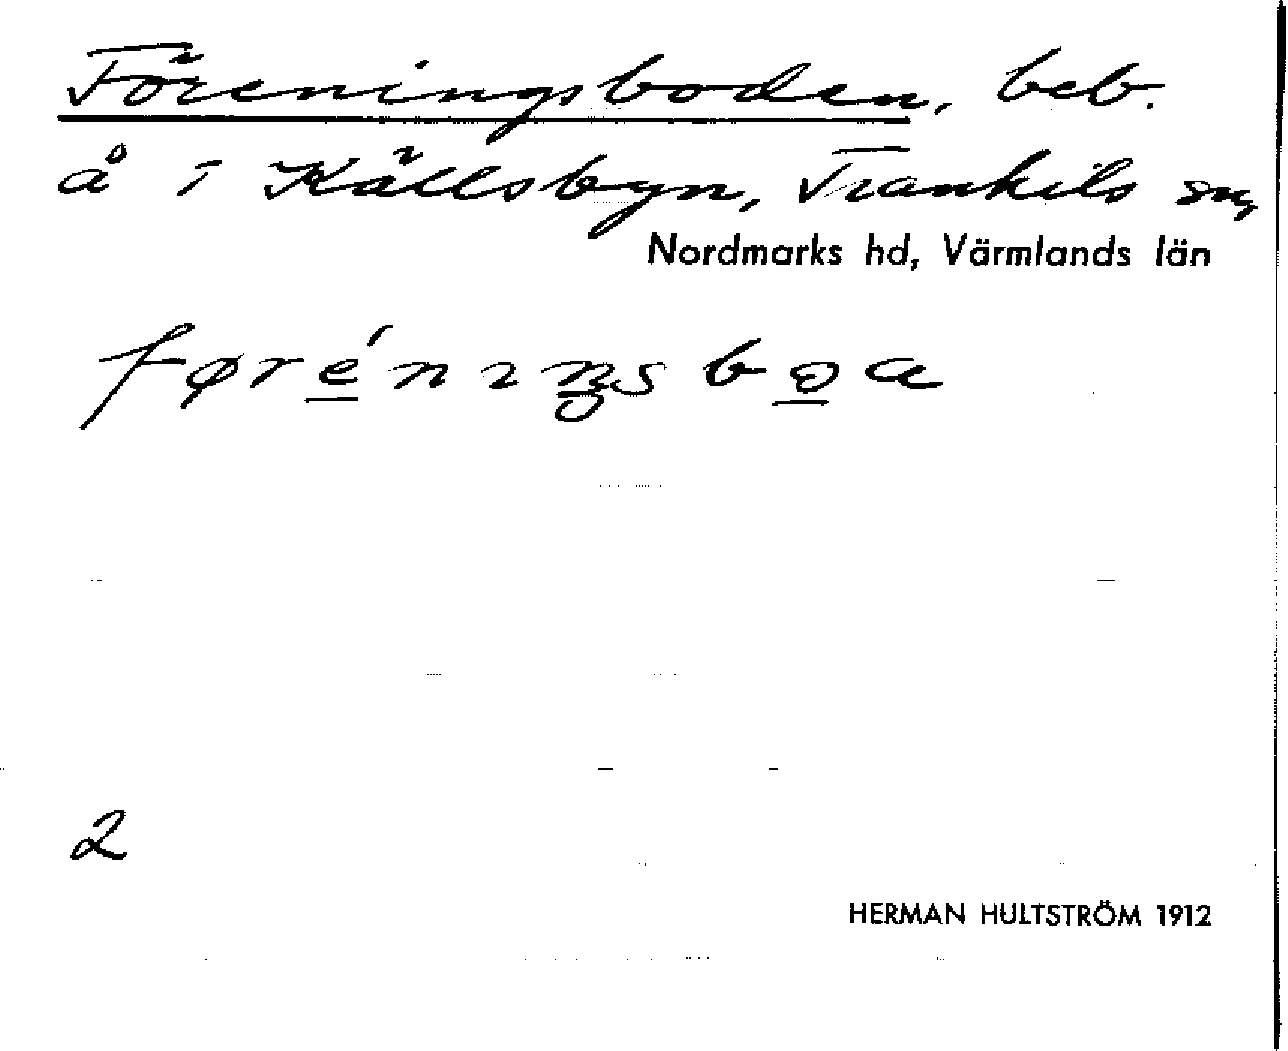 Föreningsboden, beb.
å i Källsbyn, Trankils sn,
Nordmarks hd, Värmlands län
førénıŋsbɷa
2
HERMAN HULTSTRÖM 1912